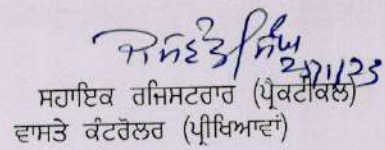 ਜਸਵੰਤ ਸਿੰਘ
2/11/23
ਸਹਾਇਕ ਰਜਿਸਟਰਾਰ (ਪ੍ਰੈਕਟੀਕਲ)
ਵਾਸਤੇ ਕੰਟਰੋਲਰ (ਪ੍ਰੀਖਿਆਵਾਂ)